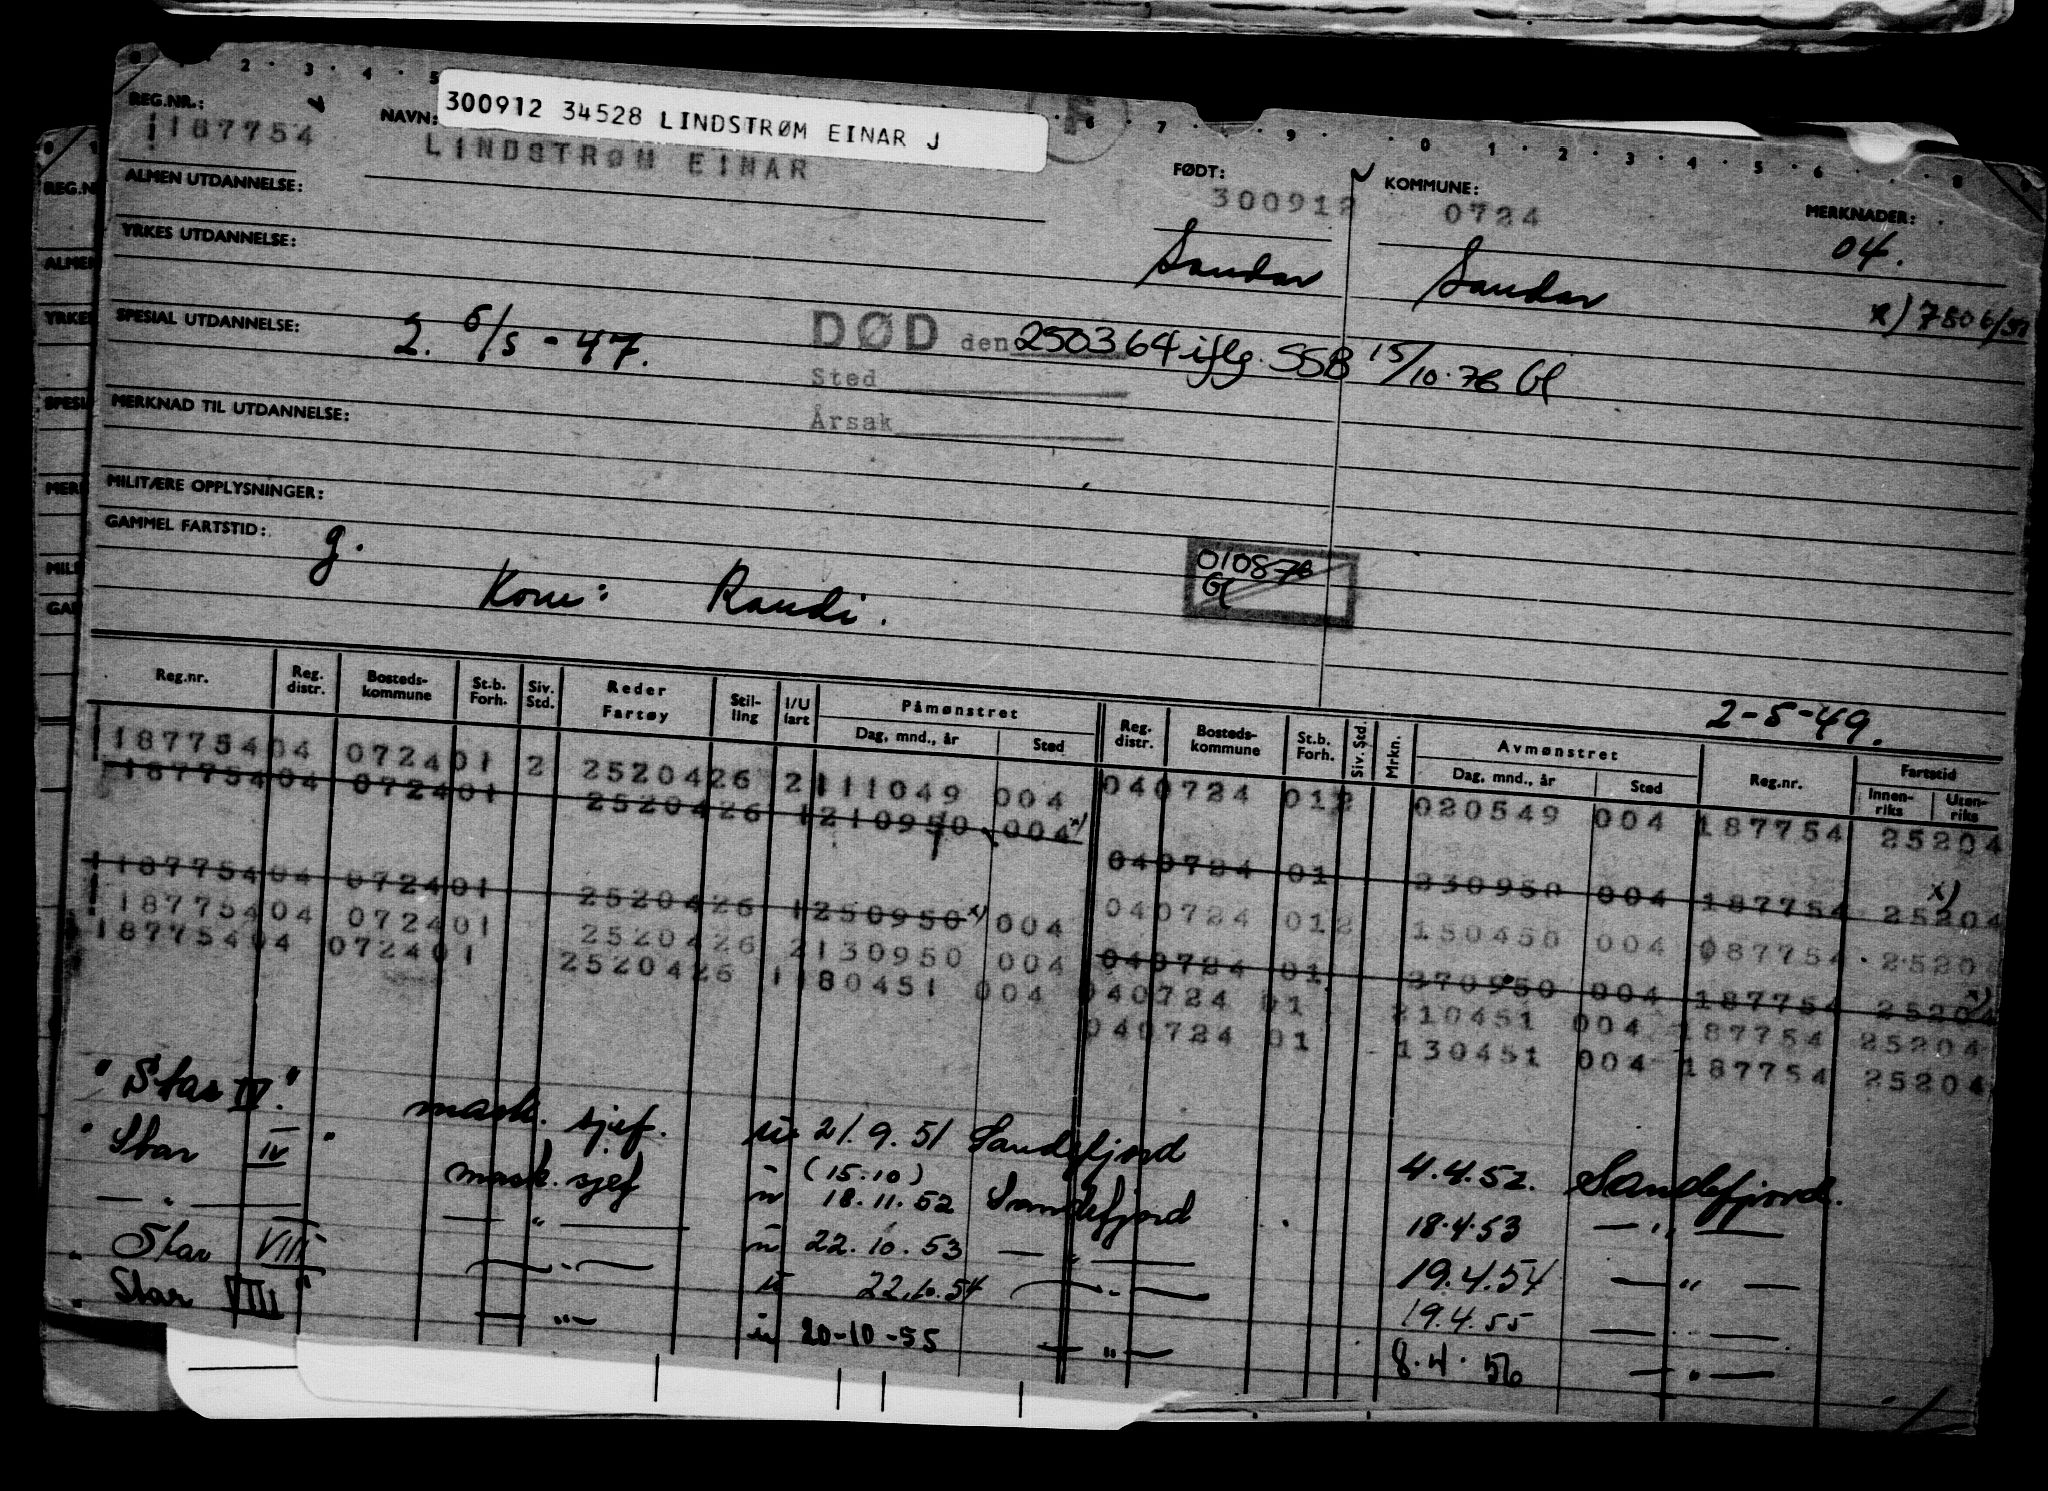 300912 34528 LINDSTRØM EINAR J
REG.NR.: 187754
NAVN: LINDSTRØM EINAR
FØDT: 300912
KOMMUNE: 0724
MERKNADER: 04.
Sandar Sandar
x) 7506/51
ALMEN UTDANNELSE:
YRKES UTDANNELSE:
SPESIAL UTDANNELSE: 2. 6/5 - 47.
DØD den 250364 iflg. SSB 15/10.76 Gl
Sted
Årsak
MERKNAD TIL UTDANNELSE:
MILITÆRE OPPLYSNINGER:
GAMMEL FARTSTID: g.
Kone: Randi.
010876
Gl
2-5-49.
Reg.nr. Reg. distr. Bosteds-kommune St.b. Forh. Siv. Std. Reder Fartøy Stil-ling I/U fart Påmønstret Dag, mnd., år Sted Reg. distr. Bosteds-kommune St.b. Forh. Siv. Std. Mrkn. Avmønstret Dag, mnd., år Sted Reg.nr. Fartstid Innen-riks Uten-riks
187754 04 0724 01 2 25204 26 2 111049 004 04 0724 01 2 020549 004 187754 25204
187754 04 0724 01 25204 26 1 210950 004 x)
04 0724 01 230950 004 187754 25204 x)
187754 04 0724 01 25204 26 1 250950 x) 004 04 0724 01 2 150450 004 187754 25204
187754 04 0724 01 25204 26 2 130950 004 04 0724 01 270950 004 187754 25204 x)
187754 04 0724 01 25204 26 1 180451 004 04 0724 01 210451 004 187754 25204
04 0724 01 130451 004 187754 25204
"Star IV." mask. sjef. u 21.9.51 Sandefjord 4.4.52. Sandefjord.
"Star IV" mask. sjef u (15.10) 18.11.52 Sandefjord 18.4.53 — " —
— " — — " — u 22.10.53 — " — 19.4.54 — " —
"Star VIII" — " — u 22.10.54 — " — 19.4.55 — " —
"Star VIII" — " — u 20-10-55 — " — 8.4.56 — " —